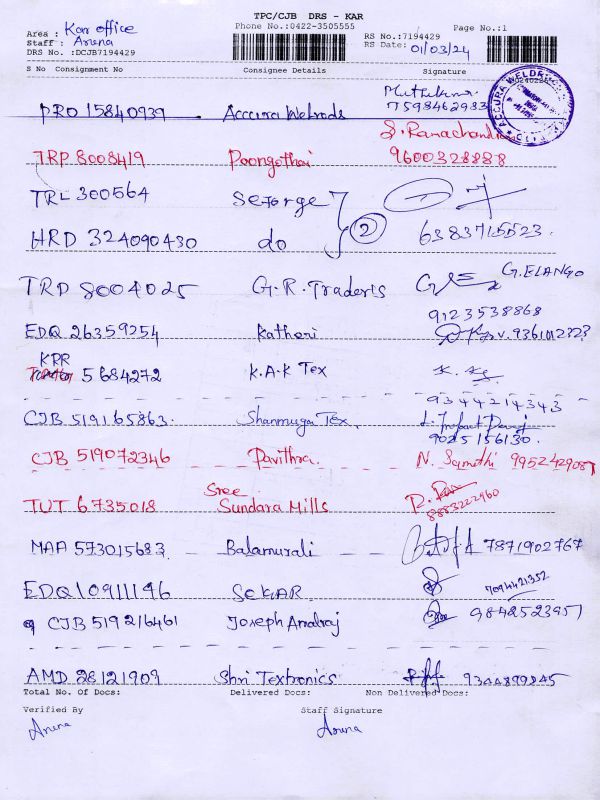 TPC/CJB DRS - KAR
Phone No.:0422-3505555
Page No.:1
Area : Kar office
Staff : Aruna
DRS No. :DCJB7194429
RS No.:7194429
RS Date: 01/03/24
S No Consignment No Consignee Details Signature
PRO 15840939 Accura Welrods 7598462983
TRP 8008419 Poongothai S. Ramachandra 9600328888
TRL 300564 SeForge
HRD 324090430 do 2 6383715523
TRD 8004025 G.R. Traders G. ELANGO
9123538868
EDQ 26359254 Katheri
KRR 5684272 K.A.K Tex
9344214343
CJB 519165863 Shanmuga Tex
9025156130
CJB 519072346 Pavithra N. Sumathi
TUT 6735018 Sree Sundara Mills
8883222960
MAA 573015683 Balamurali 7871902767
EDQ 10911196 SEKAR 7094421352
CJB 519216461 Joseph Amalraj 9842523957
AMD 28121909 Shri Textronics 9344899845
Total No. Of Docs: Delivered Docs: Non Delivered Docs:
Verified By Staff Signature
Aruna Aruna